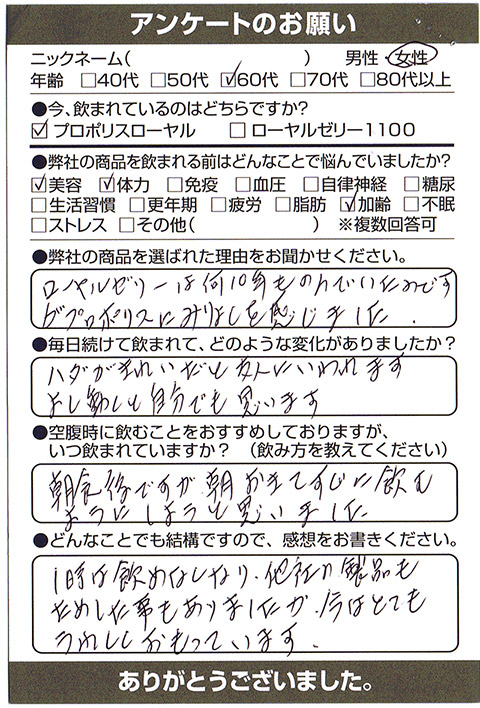 アンケートのお願い
ニックネーム( ) 男性・女性
年齢 □40代 □50代 ☑60代 □70代 □80代以上
●今、飲まれているのはどちらですか?
☑ プロポリスローヤル □ ローヤルゼリー1100
●弊社の商品を飲まれる前はどんなことで悩んでいましたか?
☑美容 ☑体力 □免疫 □血圧 □自律神経 □糖尿
□生活習慣 □更年期 □疲労 □脂肪 ☑加齢 □不眠
□ストレス □その他( ) ※複数回答可
●弊社の商品を選ばれた理由をお聞かせください。
ローヤルゼリーは何10年ものんでいたのです
がプロポリスにみりょくを感じました.
●毎日続けて飲まれて、どのような変化がありましたか?
ハダがきれいだと友人にいわれます
と自分でも思います
●空腹時に飲むことをおすすめしておりますが、
いつ飲まれていますか? (飲み方を教えてください)
朝食後ですが朝おきてすぐに飲む
ようにしようと思いました
●どんなことでも結構ですので、感想をお書きください。
1時は飲めなくなり、他社の製品も
ためした事もありましたが、今はとても
うれしくおもっています.
ありがとうございました。